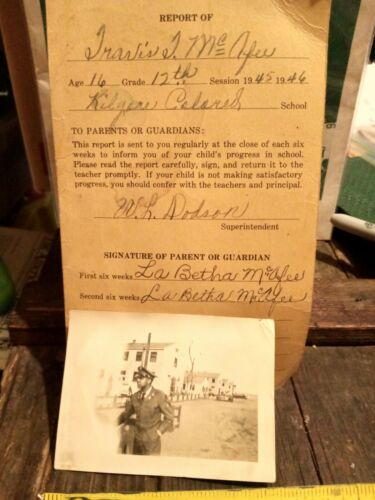 REPORT OF
Travis T. McAfee
Age 16 Grade 12th Session 1945 1946
Kilgore Colored School
TO PARENTS OR GUARDIANS:
This report is sent to you regularly at the close of each six
weeks to inform you of your child's progress in school.
Please read the report carefully, sign, and return it to the
teacher promptly. If your child is not making satisfactory
progress, you should confer with the teachers and principal.
W. L. Dodson
Superintendent
SIGNATURE OF PARENT OR GUARDIAN
First six weeks La Betha McAfee
Second six weeks La Betha McAfee